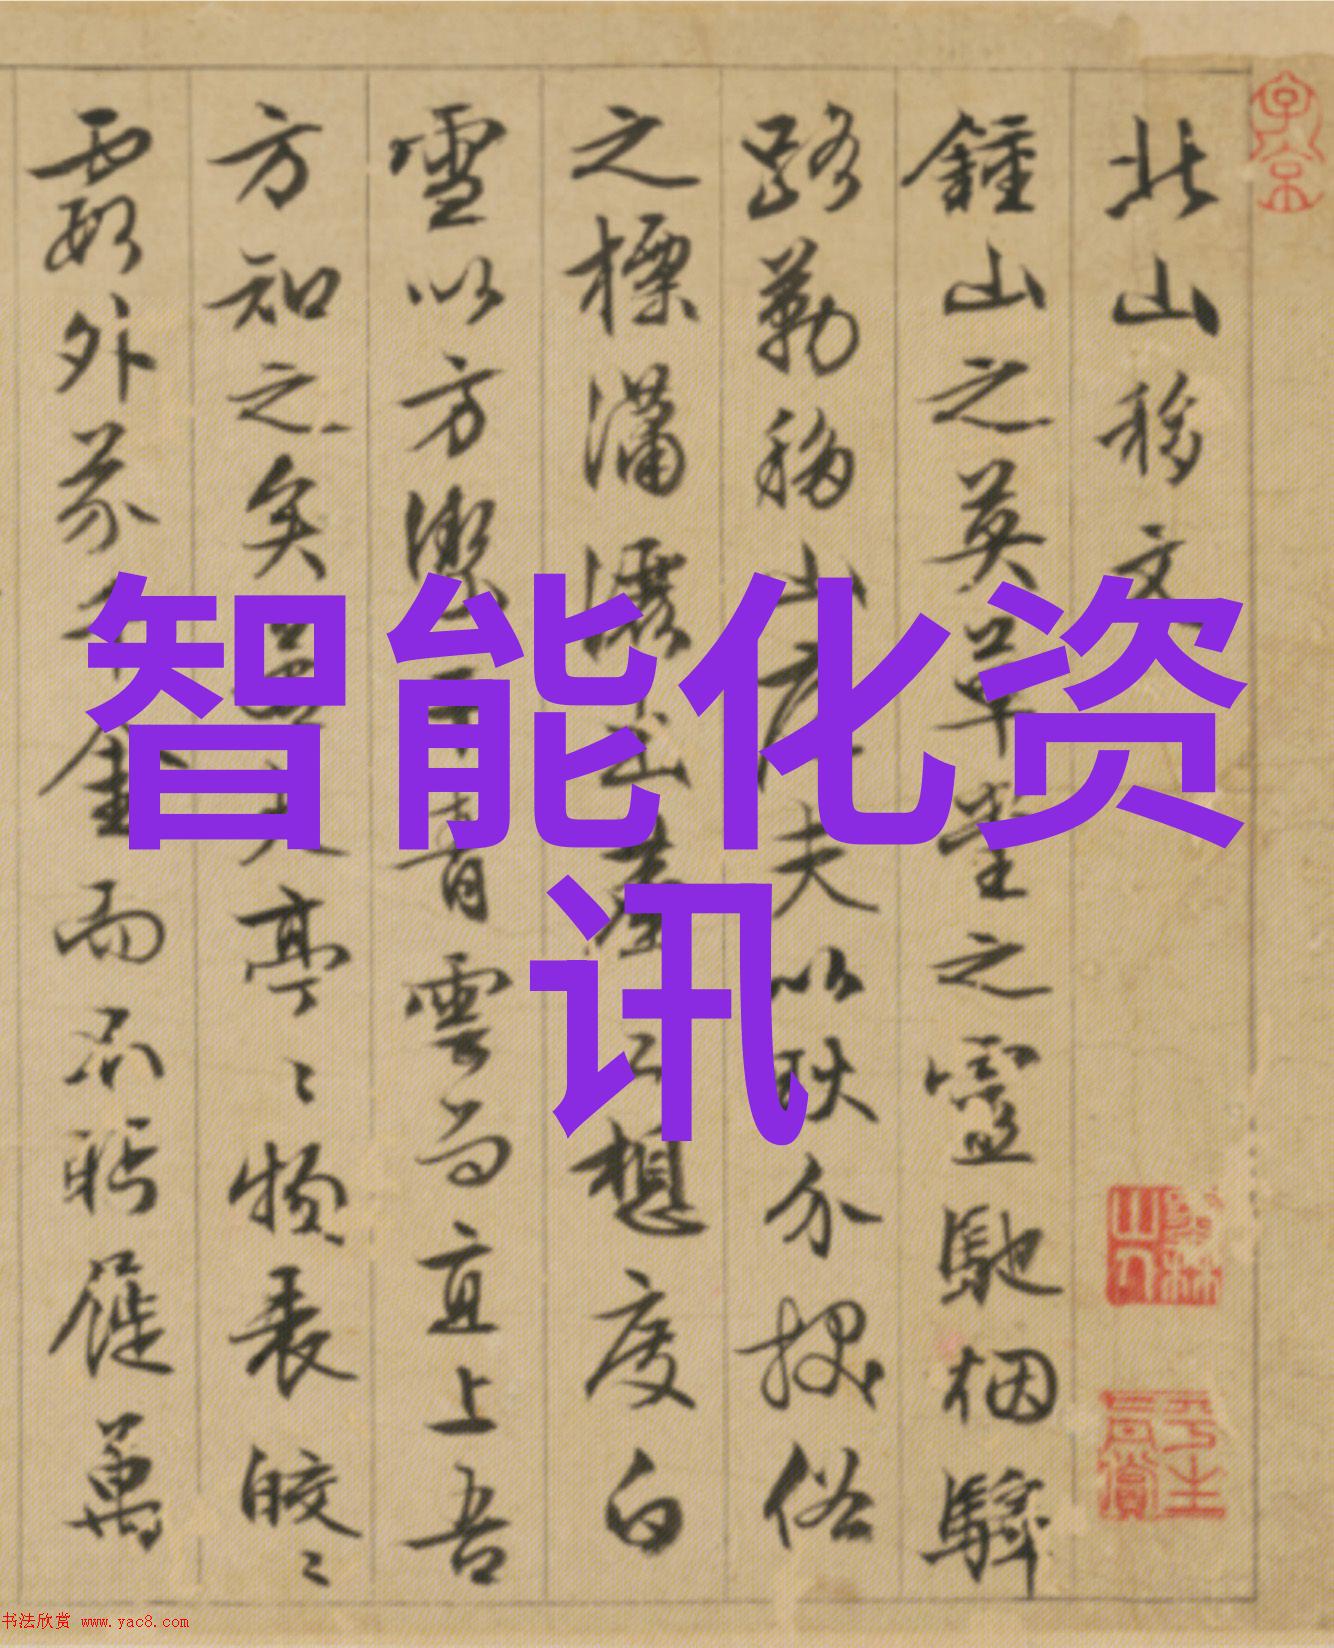 北山移文
鍾山之英草堂之靈馳煙驛
路勒移山庭夫以耿介拔俗
之標瀟灑出塵之想度白
雪以方潔干青雲而直上吾
方知之矣若其亭亭物表皎皎
霞外芥千金而不眄屣萬
智能化资
讯
书法欣赏 www.yac8.com